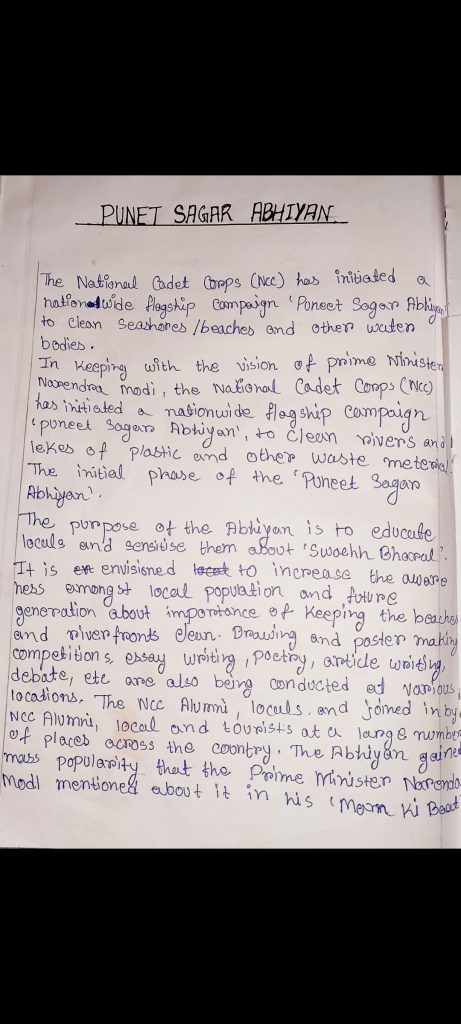 PUNET SAGAR ABHIYAN
The National Cadet Corps (NCC) has initiated a
nationalwide flagship campaign 'Puneet Sagar Abhiyan'
to clean seashores / beaches and other water
bodies.
In Keeping with the vision of prime Minister
Narendra modi, the National Cadet Corps (NCC)
has initiated a nationwide flagship campaign
'puneet Sagar Abhiyan', to clean rivers and
lekes of plastic and other waste meterial.
The initial phase of the 'Puneet Sagar
Abhiyan'.
The purpose of the Abhiyan is to educate
locals and sensitise them about 'Swachh Bharat'.
It is envisioned to increase the aware
ness amongst local population and future
generation about importance of Keeping the beaches
and river fronts clean. Drawing and poster making
competitions, essay writing, poetry, article writing,
debate, etc are also being conducted at various
locations. The NCC Alumni, locals, and joined in by
NCC Alumni, local and tourists at a large number
of places across the country. The Abhiyan gained
mass popularity that the Prime Minister Narenda
Modi mentioned about it in his 'Mann Ki Baat'